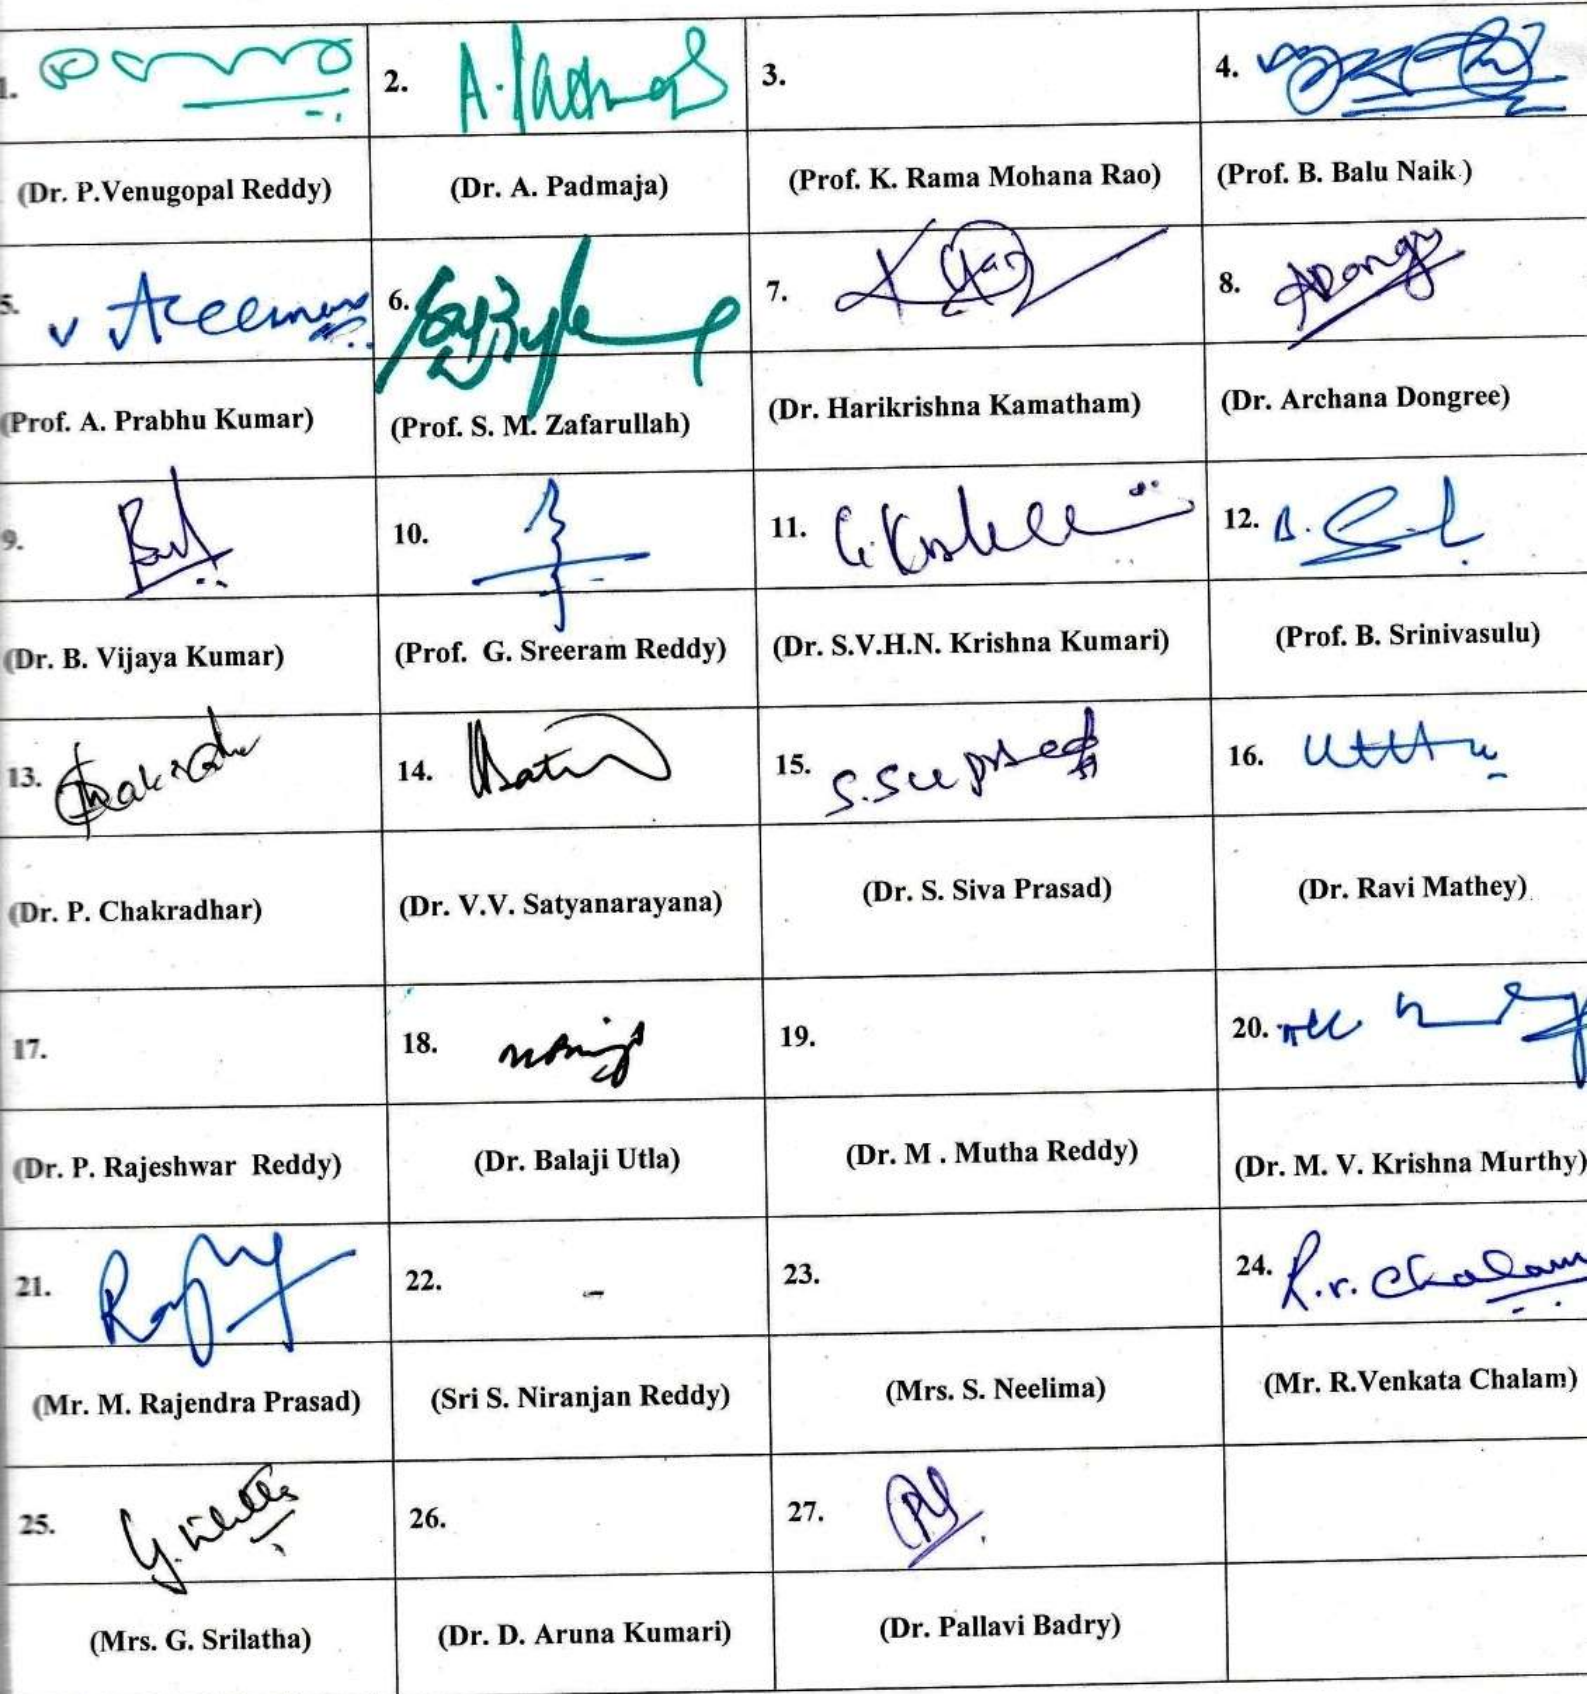 1. 2. A. Padmaja 3. 4.
(Dr. P.Venugopal Reddy) (Dr. A. Padmaja) (Prof. K. Rama Mohana Rao) (Prof. B. Balu Naik )
5. 6. 7. 8. ADongr
(Prof. A. Prabhu Kumar) (Prof. S. M. Zafarullah) (Dr. Harikrishna Kamatham) (Dr. Archana Dongree)
9. 10. 11. 12. B.
(Dr. B. Vijaya Kumar) (Prof. G. Sreeram Reddy) (Dr. S.V.H.N. Krishna Kumari) (Prof. B. Srinivasulu)
13. 14. 15. 16.
(Dr. P. Chakradhar) (Dr. V.V. Satyanarayana) (Dr. S. Siva Prasad) (Dr. Ravi Mathey)
17. 18. 19. 20.
(Dr. P. Rajeshwar Reddy) (Dr. Balaji Utla) (Dr. M . Mutha Reddy) (Dr. M. V. Krishna Murthy)
21. 22. - 23. 24. R.V. Chalam
(Mr. M. Rajendra Prasad) (Sri S. Niranjan Reddy) (Mrs. S. Neelima) (Mr. R.Venkata Chalam)
25. 26. 27.
(Mrs. G. Srilatha) (Dr. D. Aruna Kumari) (Dr. Pallavi Badry)